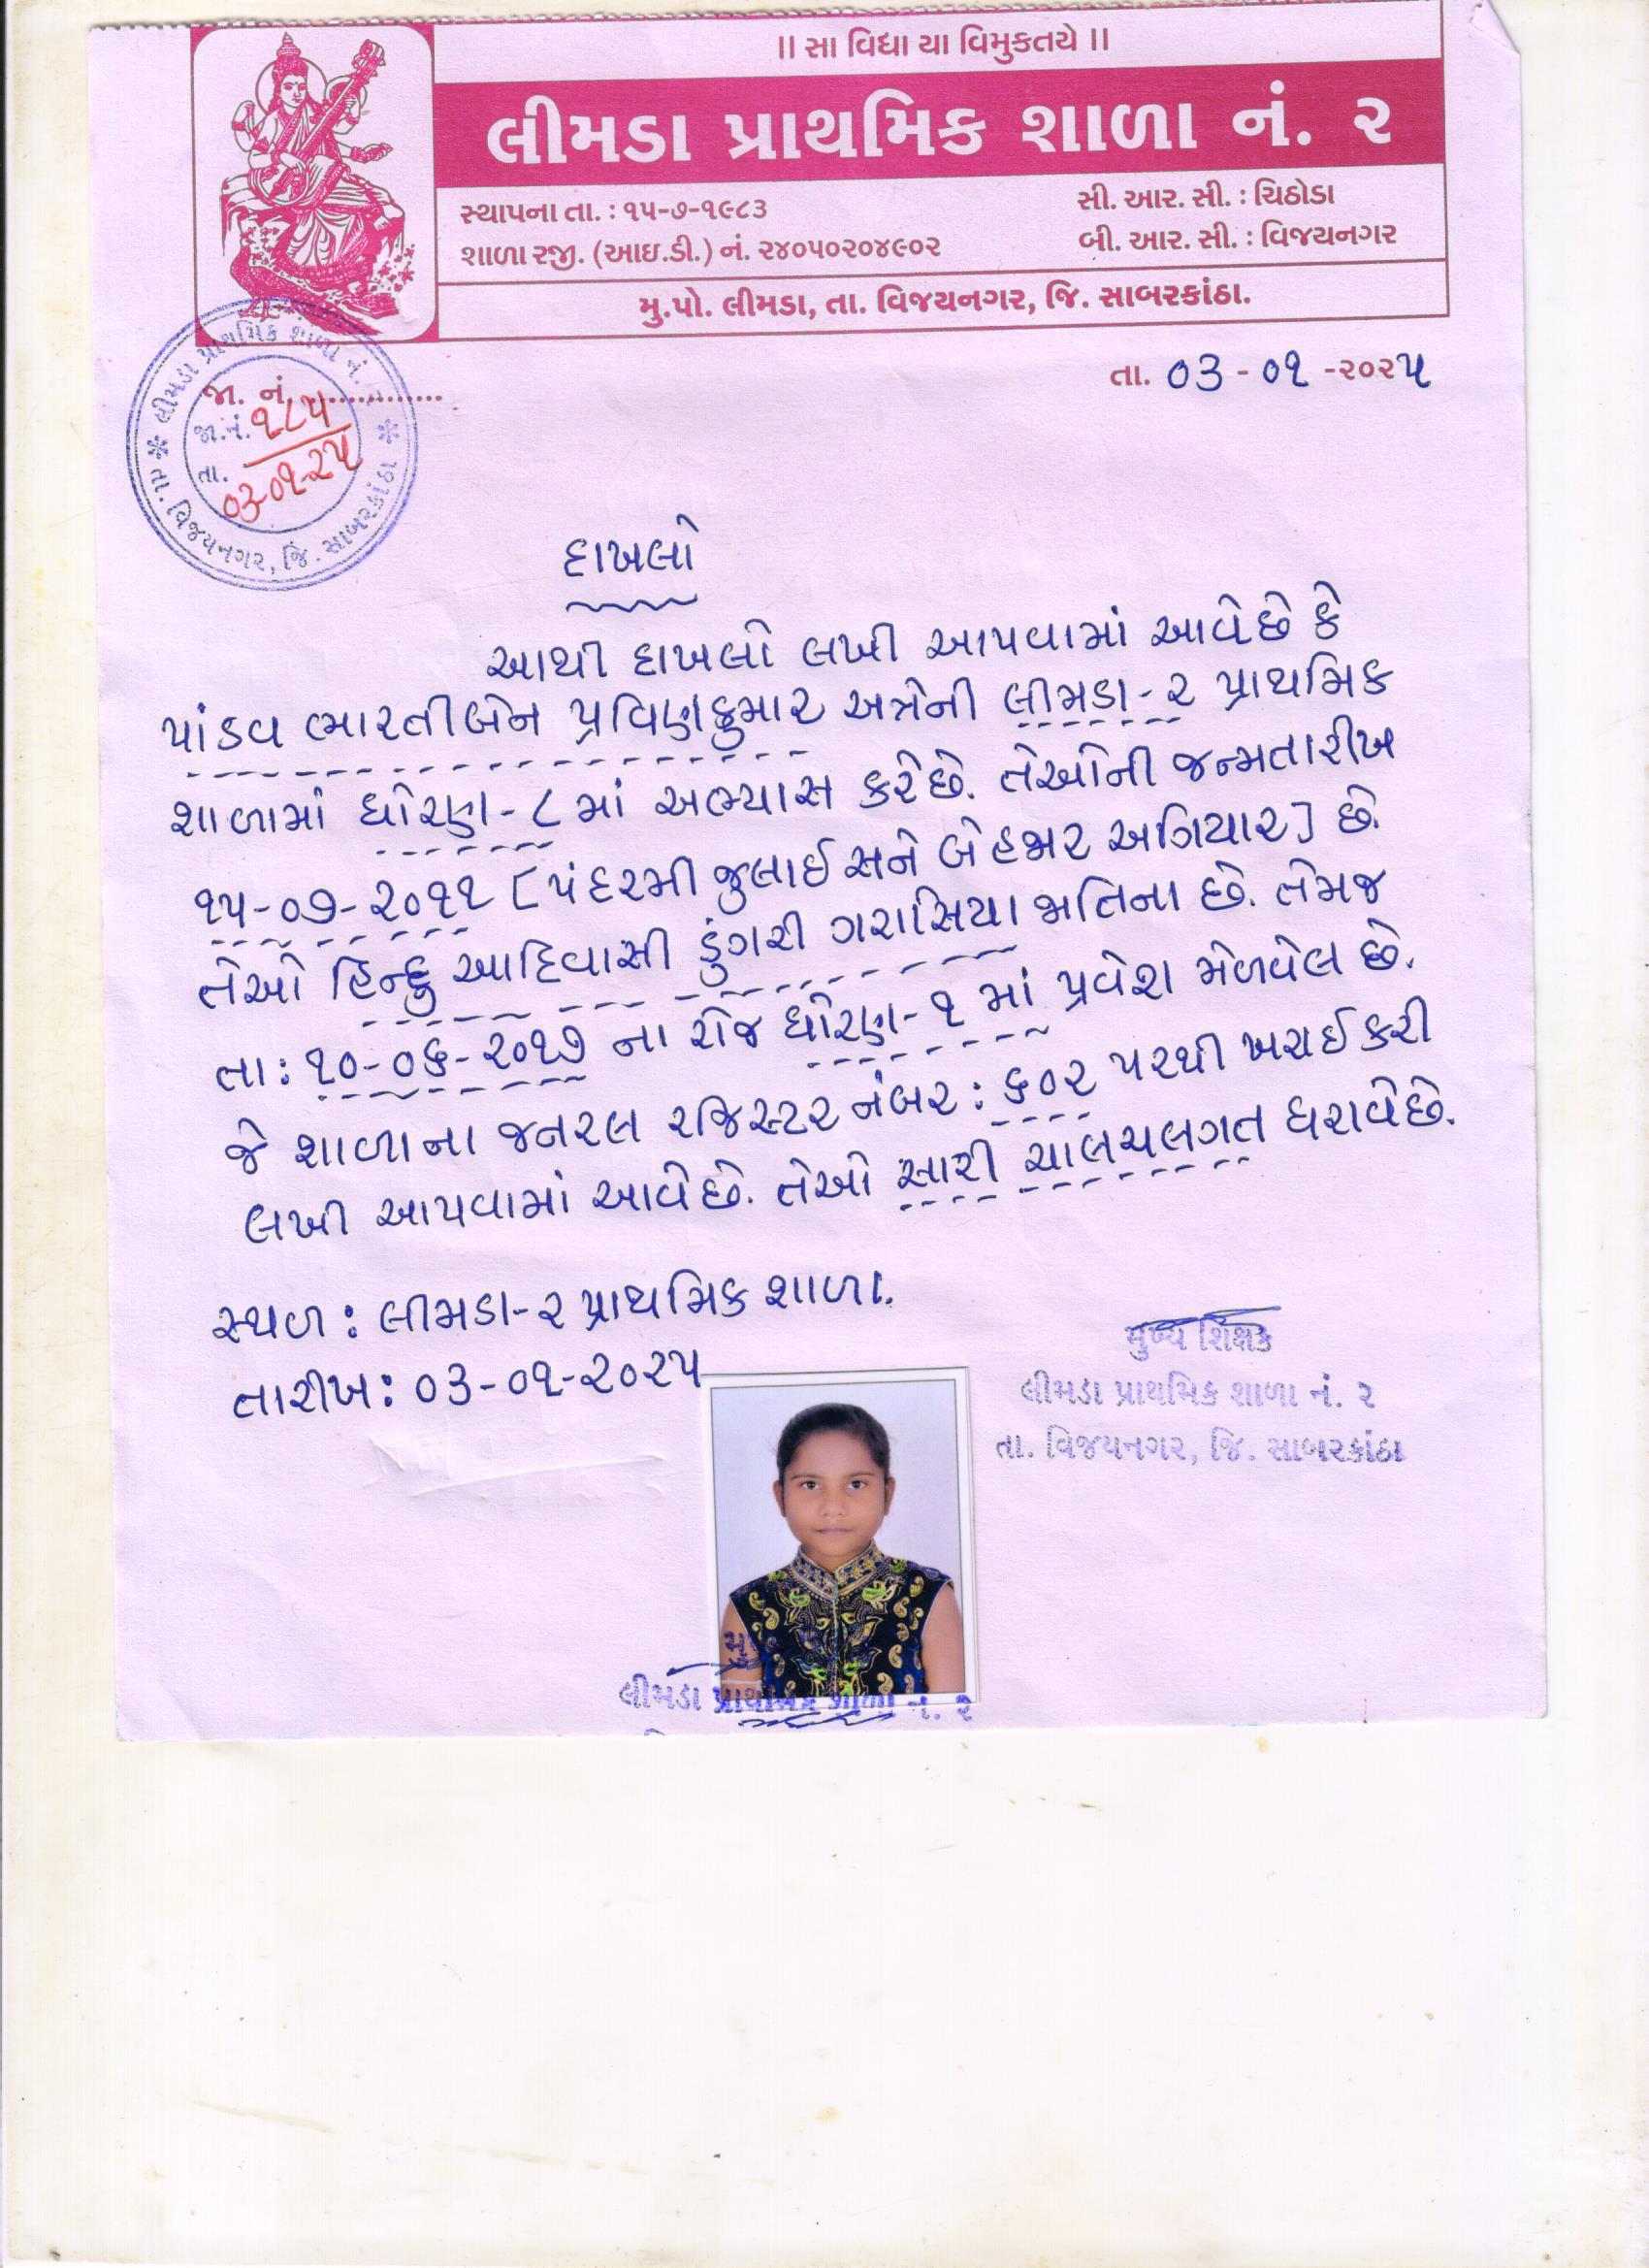 || સા વિદ્યા યા વિમુકતયે ||
લીમડા પ્રાથમિક શાળા નં. ૨
સ્થાપના તા. : ૧૫-૭-૧૯૮૩
સી. આર. સી. : ચિઠોડા
શાળા રજી. (આઇ.ડી.) નં. ૨૪૦૫૦૨૦૪૯૦૨
બી. આર. સી. : વિજયનગર
મુ.પો. લીમડા, તા. વિજયનગર, જિ. સાબરકાંઠા.
લીમડા પ્રાથમિક શાળા નં.
જા. નં. ..............
તા. ૦૩-૦૧-૨૦૨૫
જા.નં. ૧૮૫
તા. ૦૩-૦૧-૨૫
તા. વિજયનગર, જિ. સાબરકાંઠા
દાખલો
આથી દાખલો લખી આપવામાં આવેછે કે
પાંડવ ભારતીબેન પ્રવિણકુમાર અત્રેની લીમડા-૨ પ્રાથમિક
શાળામાં ધોરણ-૮ માં અભ્યાસ કરેછે. તેઓની જન્મતારીખ
૧૫-૦૭-૨૦૧૧ [પંદરમી જુલાઈ સને બેહજાર અગિયાર] છે.
તેઓ હિન્દુ આદિવાસી ડુંગરી ગરાસિયા જાતિના છે. તેમજ
તા: ૧૦-૦૬-૨૦૧૭ ના રોજ ધોરણ-૧ માં પ્રવેશ મેળવેલ છે.
જે શાળાના જનરલ રજિસ્ટર નંબર: ૬૦૨ પરથી ખરાઈ કરી
લખી આપવામાં આવેછે. તેઓ સારી ચાલચલગત ધરાવેછે.
સ્થળ: લીમડા-૨ પ્રાથમિક શાળા.
તારીખ: ૦૩-૦૧-૨૦૨૫
મુખ્ય શિક્ષક
લીમડા પ્રાથમિક શાળા નં. ૨
તા. વિજયનગર, જિ. સાબરકાંઠા
લીમડા પ્રાથમિક શાળા નં. ૨